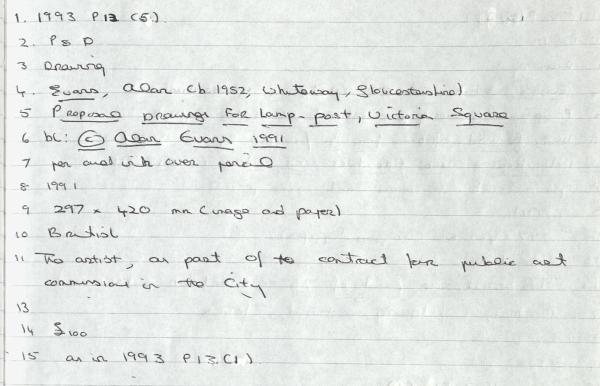 1. 1993 P13 (5)
2. P & D
3 Drawing
4. Evans, Alan (b 1952, Whiteway, Gloucestershire)
5 Proposal Drawings for Lamp-post, Victoria Square
6 bc: © Alan Evans 1991
7 pen and ink over pencil
8 1991
9 297 x 420 mm (image and paper)
10 British
11 The artist, as part of the contract for public art
commissions in the City
13
14 £100
15 as in 1993 P13.(1)